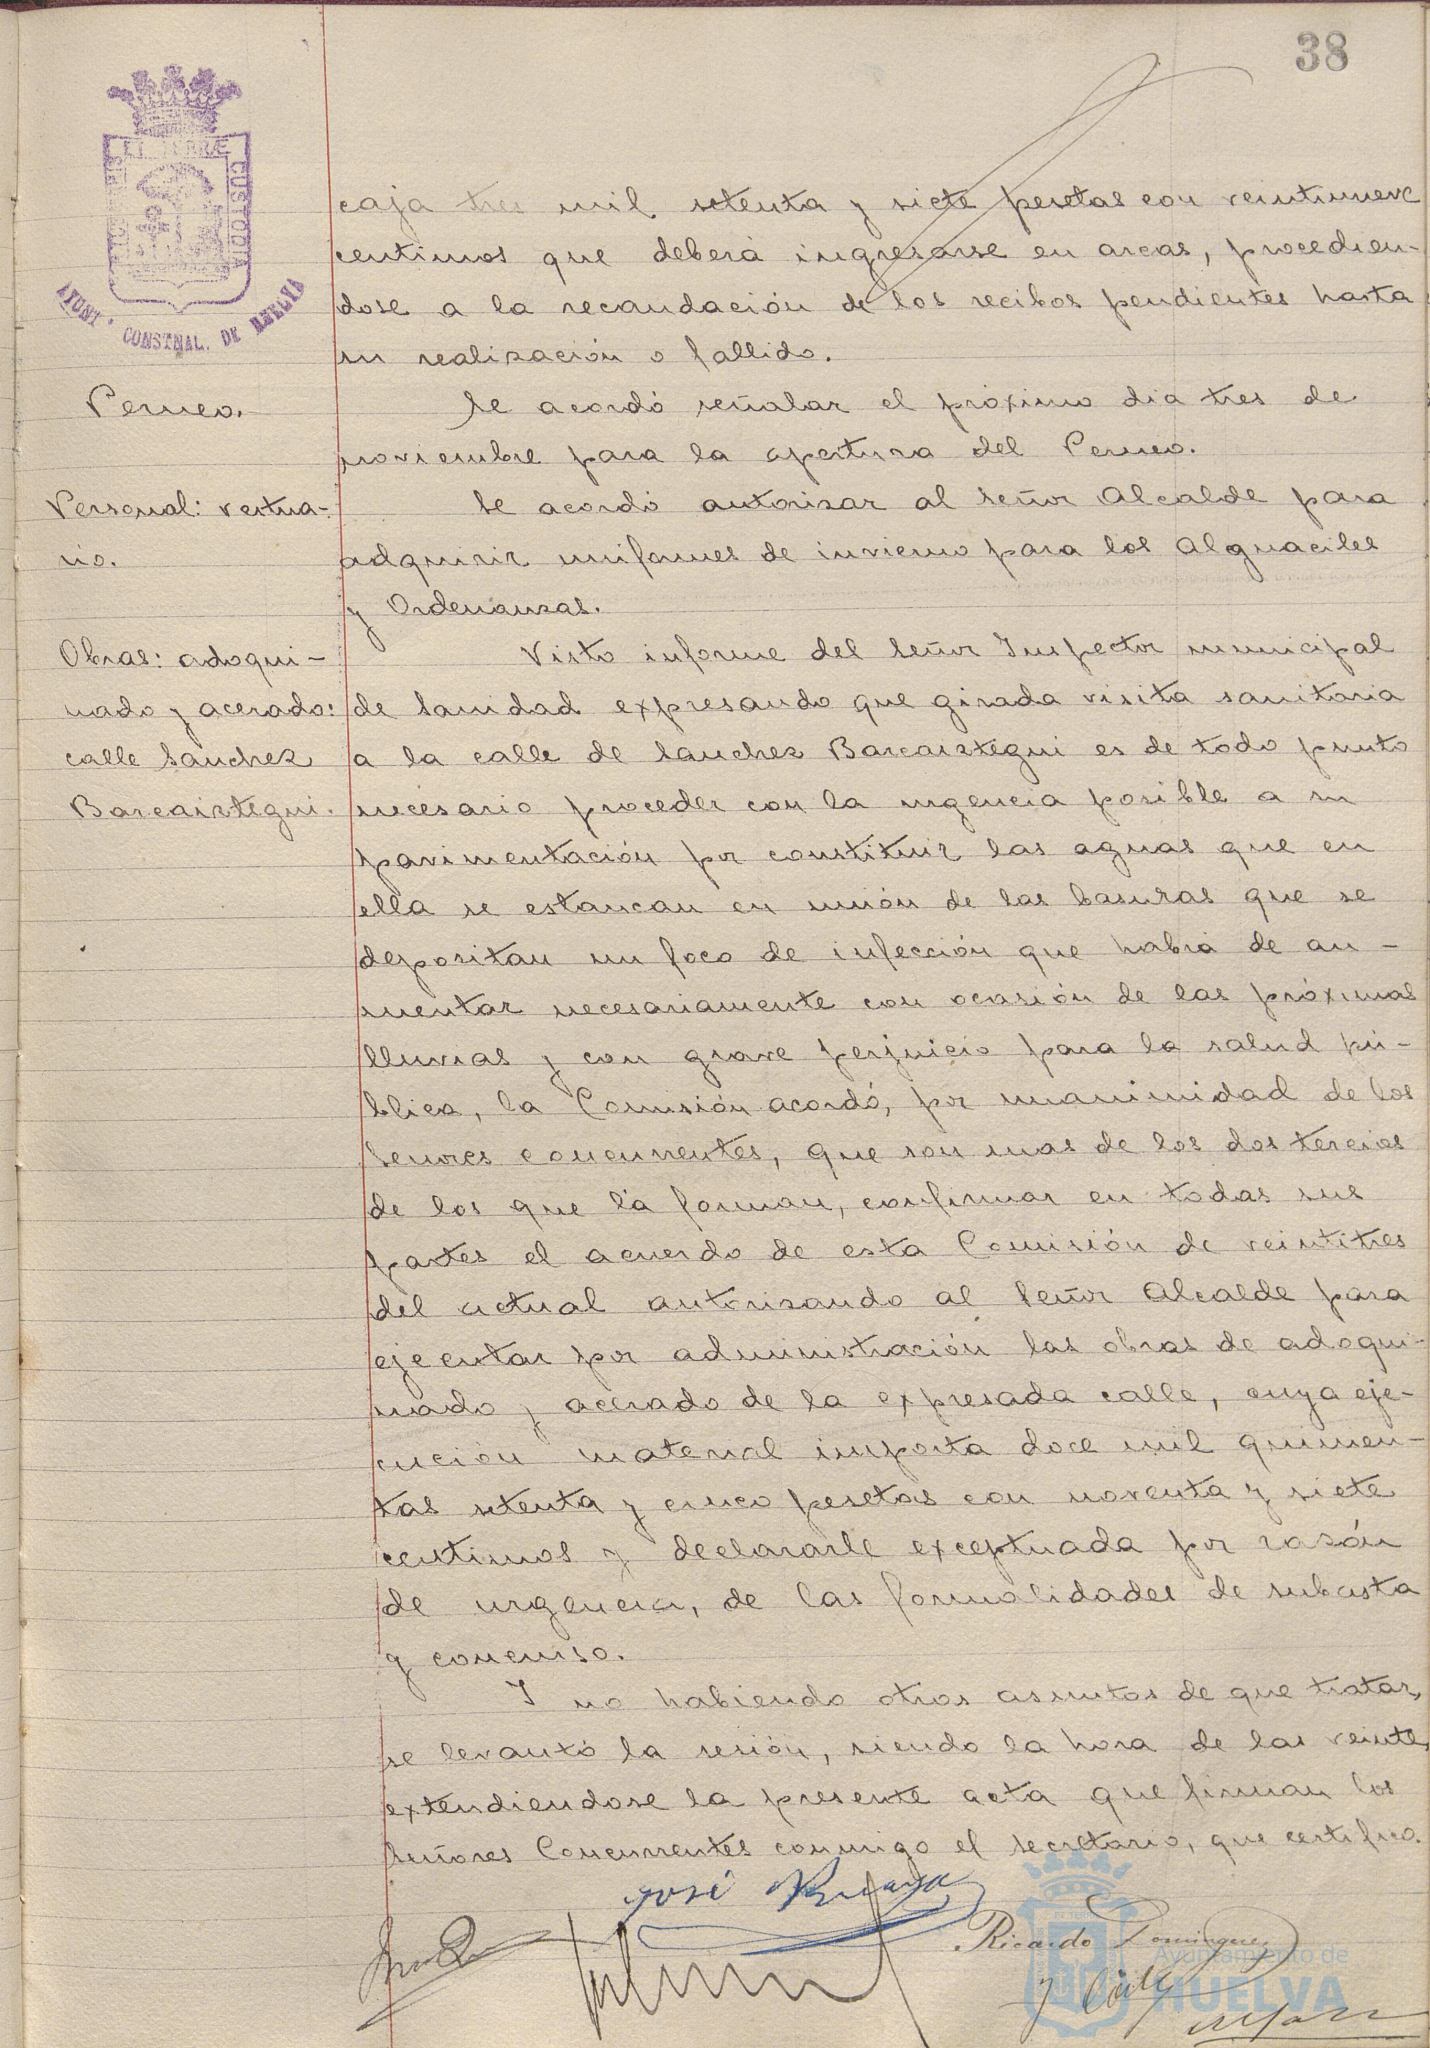 38
PORTUS MARIS ET TERRÆ CUSTODIA
AYUNT. CONSTNAL. DE HUELVA
caja tres mil setenta y siete pesetas con veintinueve
centimos que deberá ingresarse en arcas, procedien-
dose a la recaudación de los recibos pendientes hasta
su realización o fallido.
Perneo.
Se acordó señalar el próximo dia tres de
noviembre para la apertura del Perneo.
Personal: vestua-
rio.
Se acordó autorizar al señor Alcalde para
adquirir uniformes de invierno para los Alguaciles
y Ordenanzas.
Obras: adoqui-
nado y acerado:
calle Sanchez
Barcaiztegui.
Visto informe del Señor Inspector municipal
de Sanidad expresando que girada visita sanitaria
a la calle de Sanchez Barcaiztegui es de todo punto
necesario proceder con la urgencia posible a su
pavimentación por constituir las aguas que en
ella se estancan en unión de las basuras que se
depositan un foco de infección que habrá de au-
mentar necesariamente con ocasión de las próximas
lluvias y con grave perjuicio para la salud pú-
blica, la Comisión acordó, por unanimidad de los
Señores concurrentes, que son mas de los dos tercios
de los que la forman, confirmar en todas sus
partes el acuerdo de esta Comisión de veintitres
del actual autorizando al Señor Alcalde para
ejecutar por administración las obras de adoqui-
nado y acerado de la expresada calle, cuya eje-
cución material importa doce mil quinien-
tas setenta y cinco pesetas con noventa y siete
centimos y declararle exceptuada por razón
de urgencia, de las formalidades de subasta
y concurso.
Y no habiendo otros asuntos de que tratar,
se levantó la sesión, siendo la hora de las veinte,
extendiendose la presente acta que firman los
Señores Concurrentes conmigo el secretario, que certifico.
José
Ricardo Dominguez
Ayuntamiento de
HUELVA